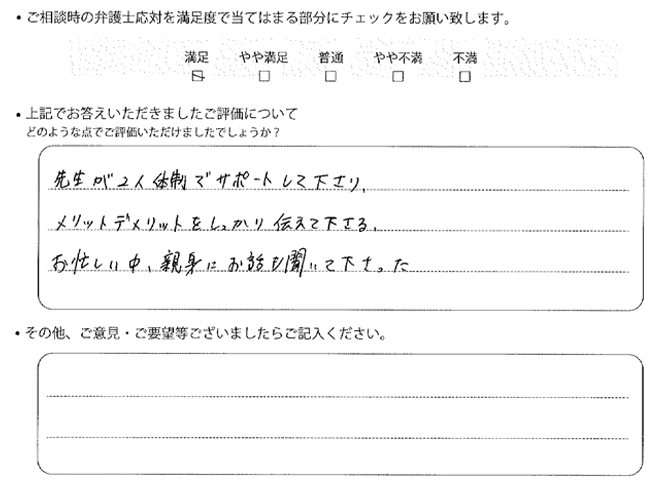 ・ご相談時の弁護士応対を満足度で当てはまる部分にチェックをお願い致します。
満足 やや満足 普通 やや不満 不満
・上記でお答えいただきましたご評価について
どのような点でご評価いただけましたでしょうか？
先生が2人体制でサポートして下さり、
メリットデメリットをしっかり伝えて下さる、
お忙しい中、親身にお話も聞いて下さった
・その他、ご意見・ご要望等ございましたらご記入ください。